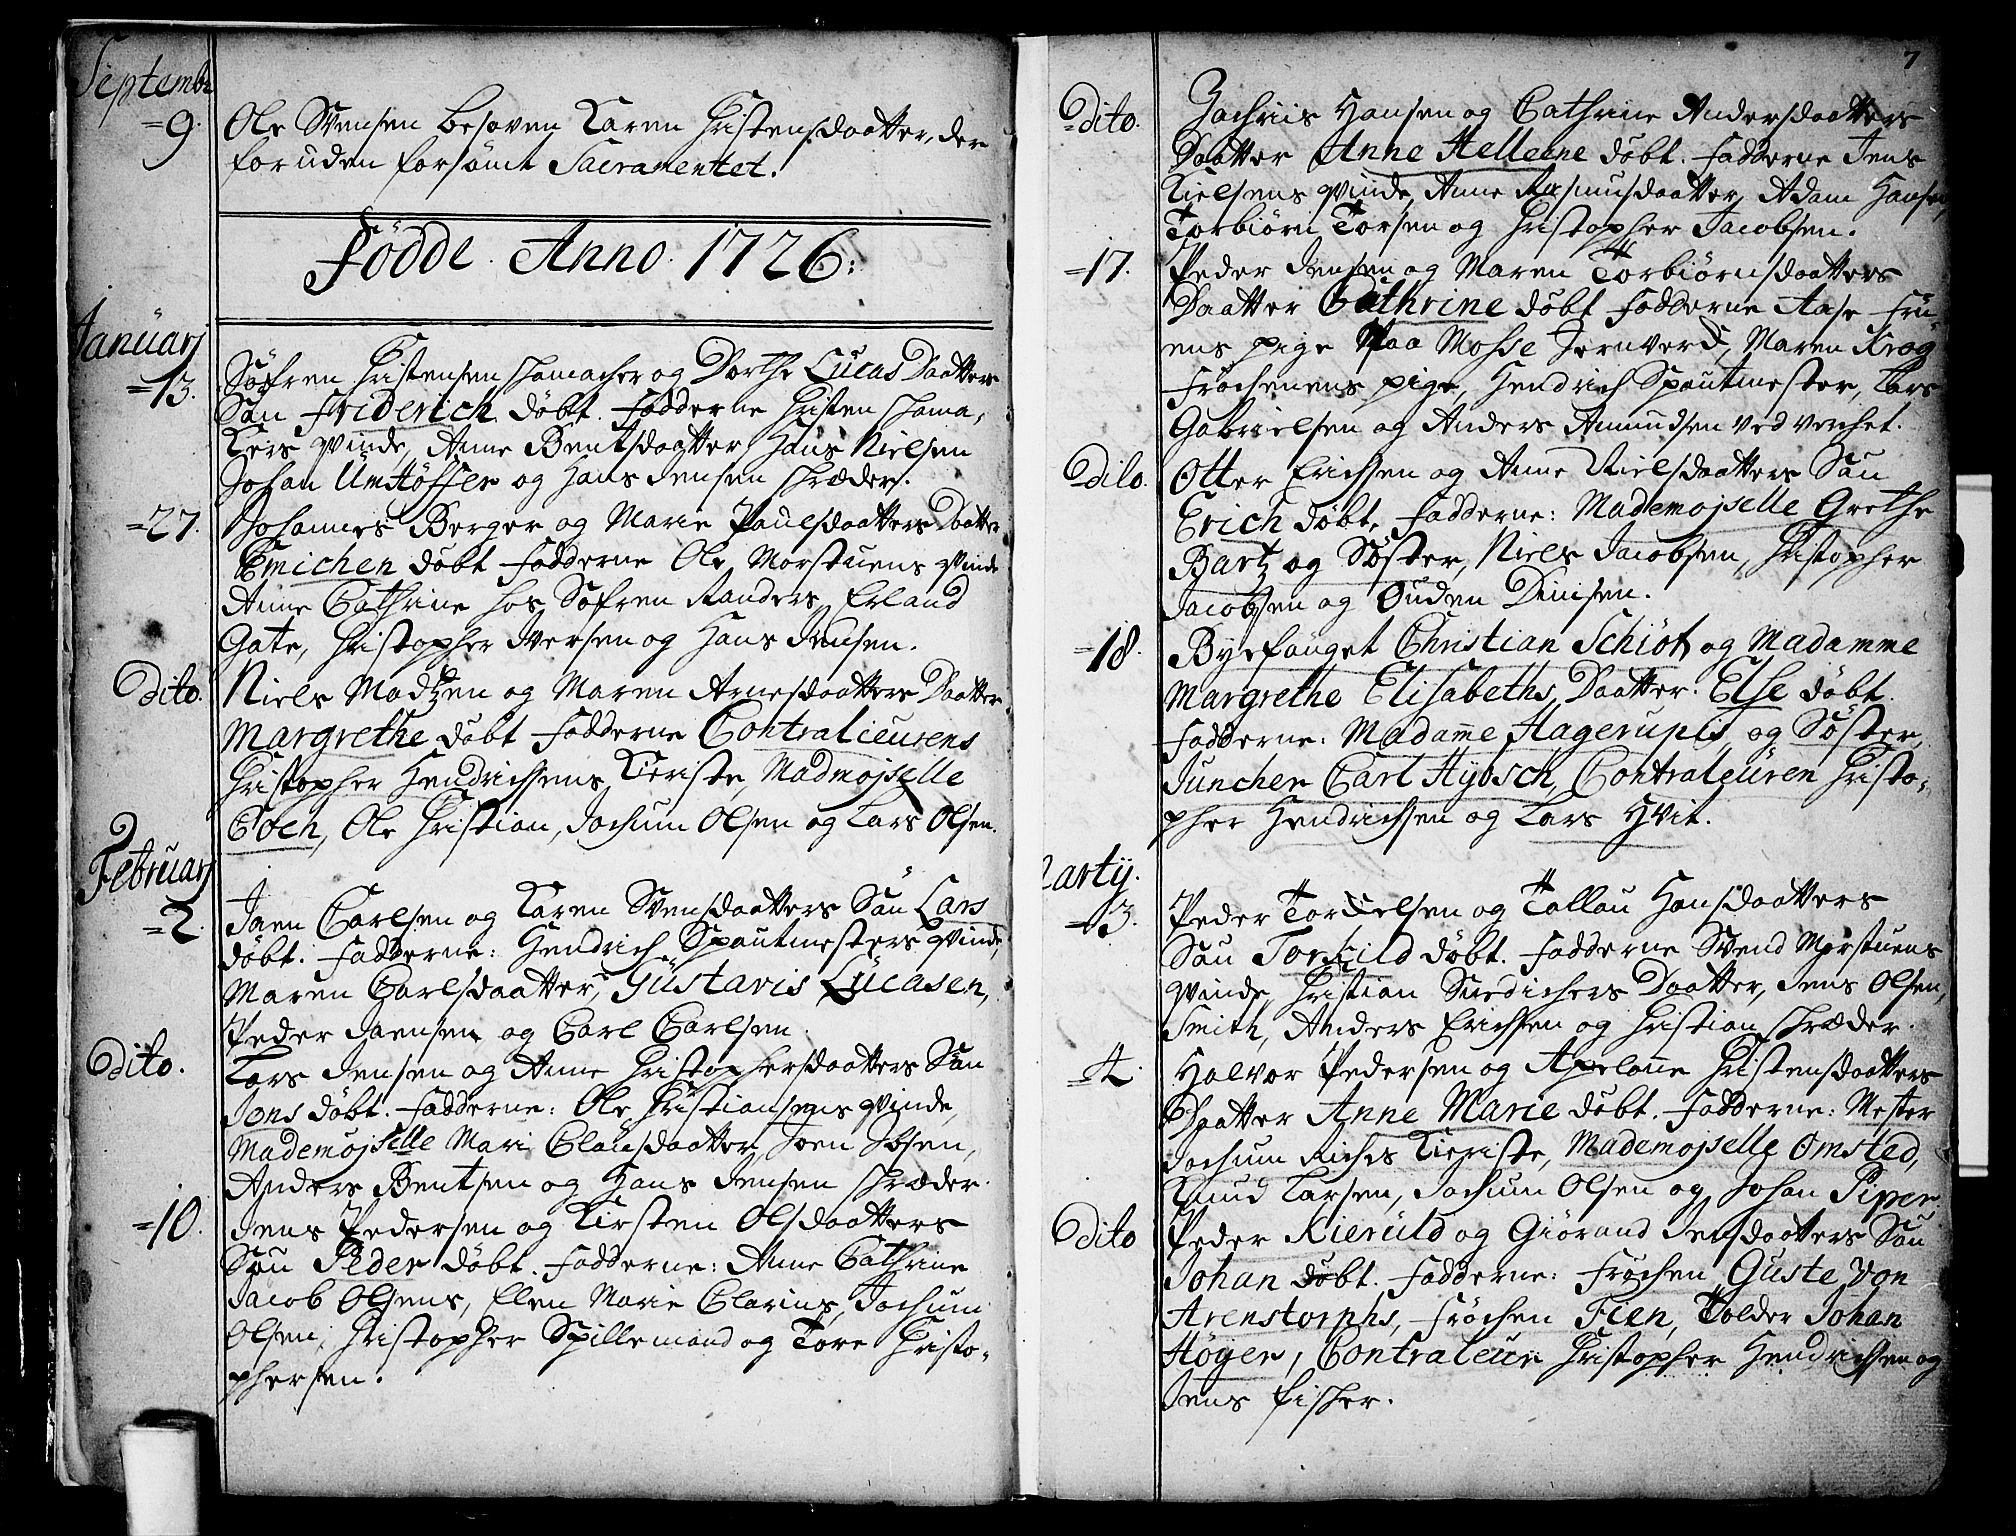 Septembr
=9. Ole Svensen besoven Karen Christensdaatter, der
foruden forsømt Sacramentet.
Födde Anno 1726:
Januarj
=13. Søfren Christensen Skomacher og Dorthe Lucas Daatters
Søn Friderich döbt. Fadderne Christen Skoma-
kers qvinde, Anne Bentsdaatter, Hans Nielsen
Johan Umstöffer og Hans Jensen Skræder.
=27. Johannes Berger og Marie Paulsdaatters Daatter
Emichen döbt Fadderne Ole Morstuens qvinde
Anne Cathrine hos Söfren Randers, Erland
Gate, Christopher Iversen og Hans Jensen.
Dito. Niels Madtzen og Maren Arnesdaatters Daatter
Margrethe döbt Fadderne Contralieurens
Christopher Hendrichsens Kieriste, Madmojselle
Coen, Ole Christian, Jochum Olsen og Lars Olsen.
Februarj
=2. Jaen Carlsen og Karen Svensdaatters Sön Lars
döbt. Fadderne: Hendrich Spautmesters qvinde,
Maren Carlsdaatter, Güstavis Lücasen,
Peder Jaensen og Carl Carlsen.
Dito. Lars Jensen og Anne Christophersdaatters Sön
Jons döbt. Fadderne: Ole Christiansens qvinde,
Mademojselle Mari Clausdaatter, Joen Ibsen,
Anders Bentsen og Hans Jensen Skræder.
=10. Jens Pedersen og Kirsten Olsdaatters
Sön Peder döbt. Fadderne: Anne Cathrine
Jacob Olsens, Elen Marie Clarius, Jochum
Olsen, Christopher Spillemand og Tore Christo-
phersen.
7
Dito. Zachriis Hansen og Cathrine Andersdaatters
Daatter Anne Helleene döbt. Fadderne Jens
Kielsens qvinde, Anne Rasmusdaatter, Adam Hansen,
Torbiörn Torsen og Christopher Jacobsen.
=17. Peder Jensen og Maren Torbiörnsdaatters
Daatter Cathrine döbt Fadderne Aase Fru-
ens pige Paa Mosse Jernverch, Maren Krog
Fröchenens pige, Hendrich Spautmester, Lars
Gabrielsen og Anders Amundsen ved verchet.
Dito. Otter Erichsen og Anne Nielsdaatters Sön
Erich döbt. Fadderne: Mademojselle Grethe
Bartz og Söster, Niels Jacobsen, Christopher
Jacobsen og Ouden Dinisen.
=18. Byefouget Christian Schiöt og Madamme
Margrethe Elisabeths Daatter. Else döbt.
Fadderne: Madame Hagerupis, og Söster,
Juncher Carl Hybsch, Contraleüren Christo-
pher Hendrichsen og Lars Hvit.
Martij.
=3. Peder Torkielsen og Tallau Hansdaatters
Sön Torkild döbt. Fadderne Svend Morstuens
qvinde, Christian Snedichers Daatter, Jens Olsen,
Smith, Anders Erichsen og Christian Skræder.
=4. Halvor Pedersen og Apelone Christensdaatters
Daatter Anne Marie döbt. Fadderne: Mester
Jochum Riches Kieriste, Mademojselle Omsted,
Knud Larsen, Jochum Olsen og Johan Piper.
Dito Peder Kieruld og Giörand Jensdaatters Sön
Johan döbt. Fadderne: Fröchen Güste von
Arenstorphs, Fröchen Fien, Tolder Johan
Höyer, Contraleur Christopher Hendrichsen og
Jens Fisker.